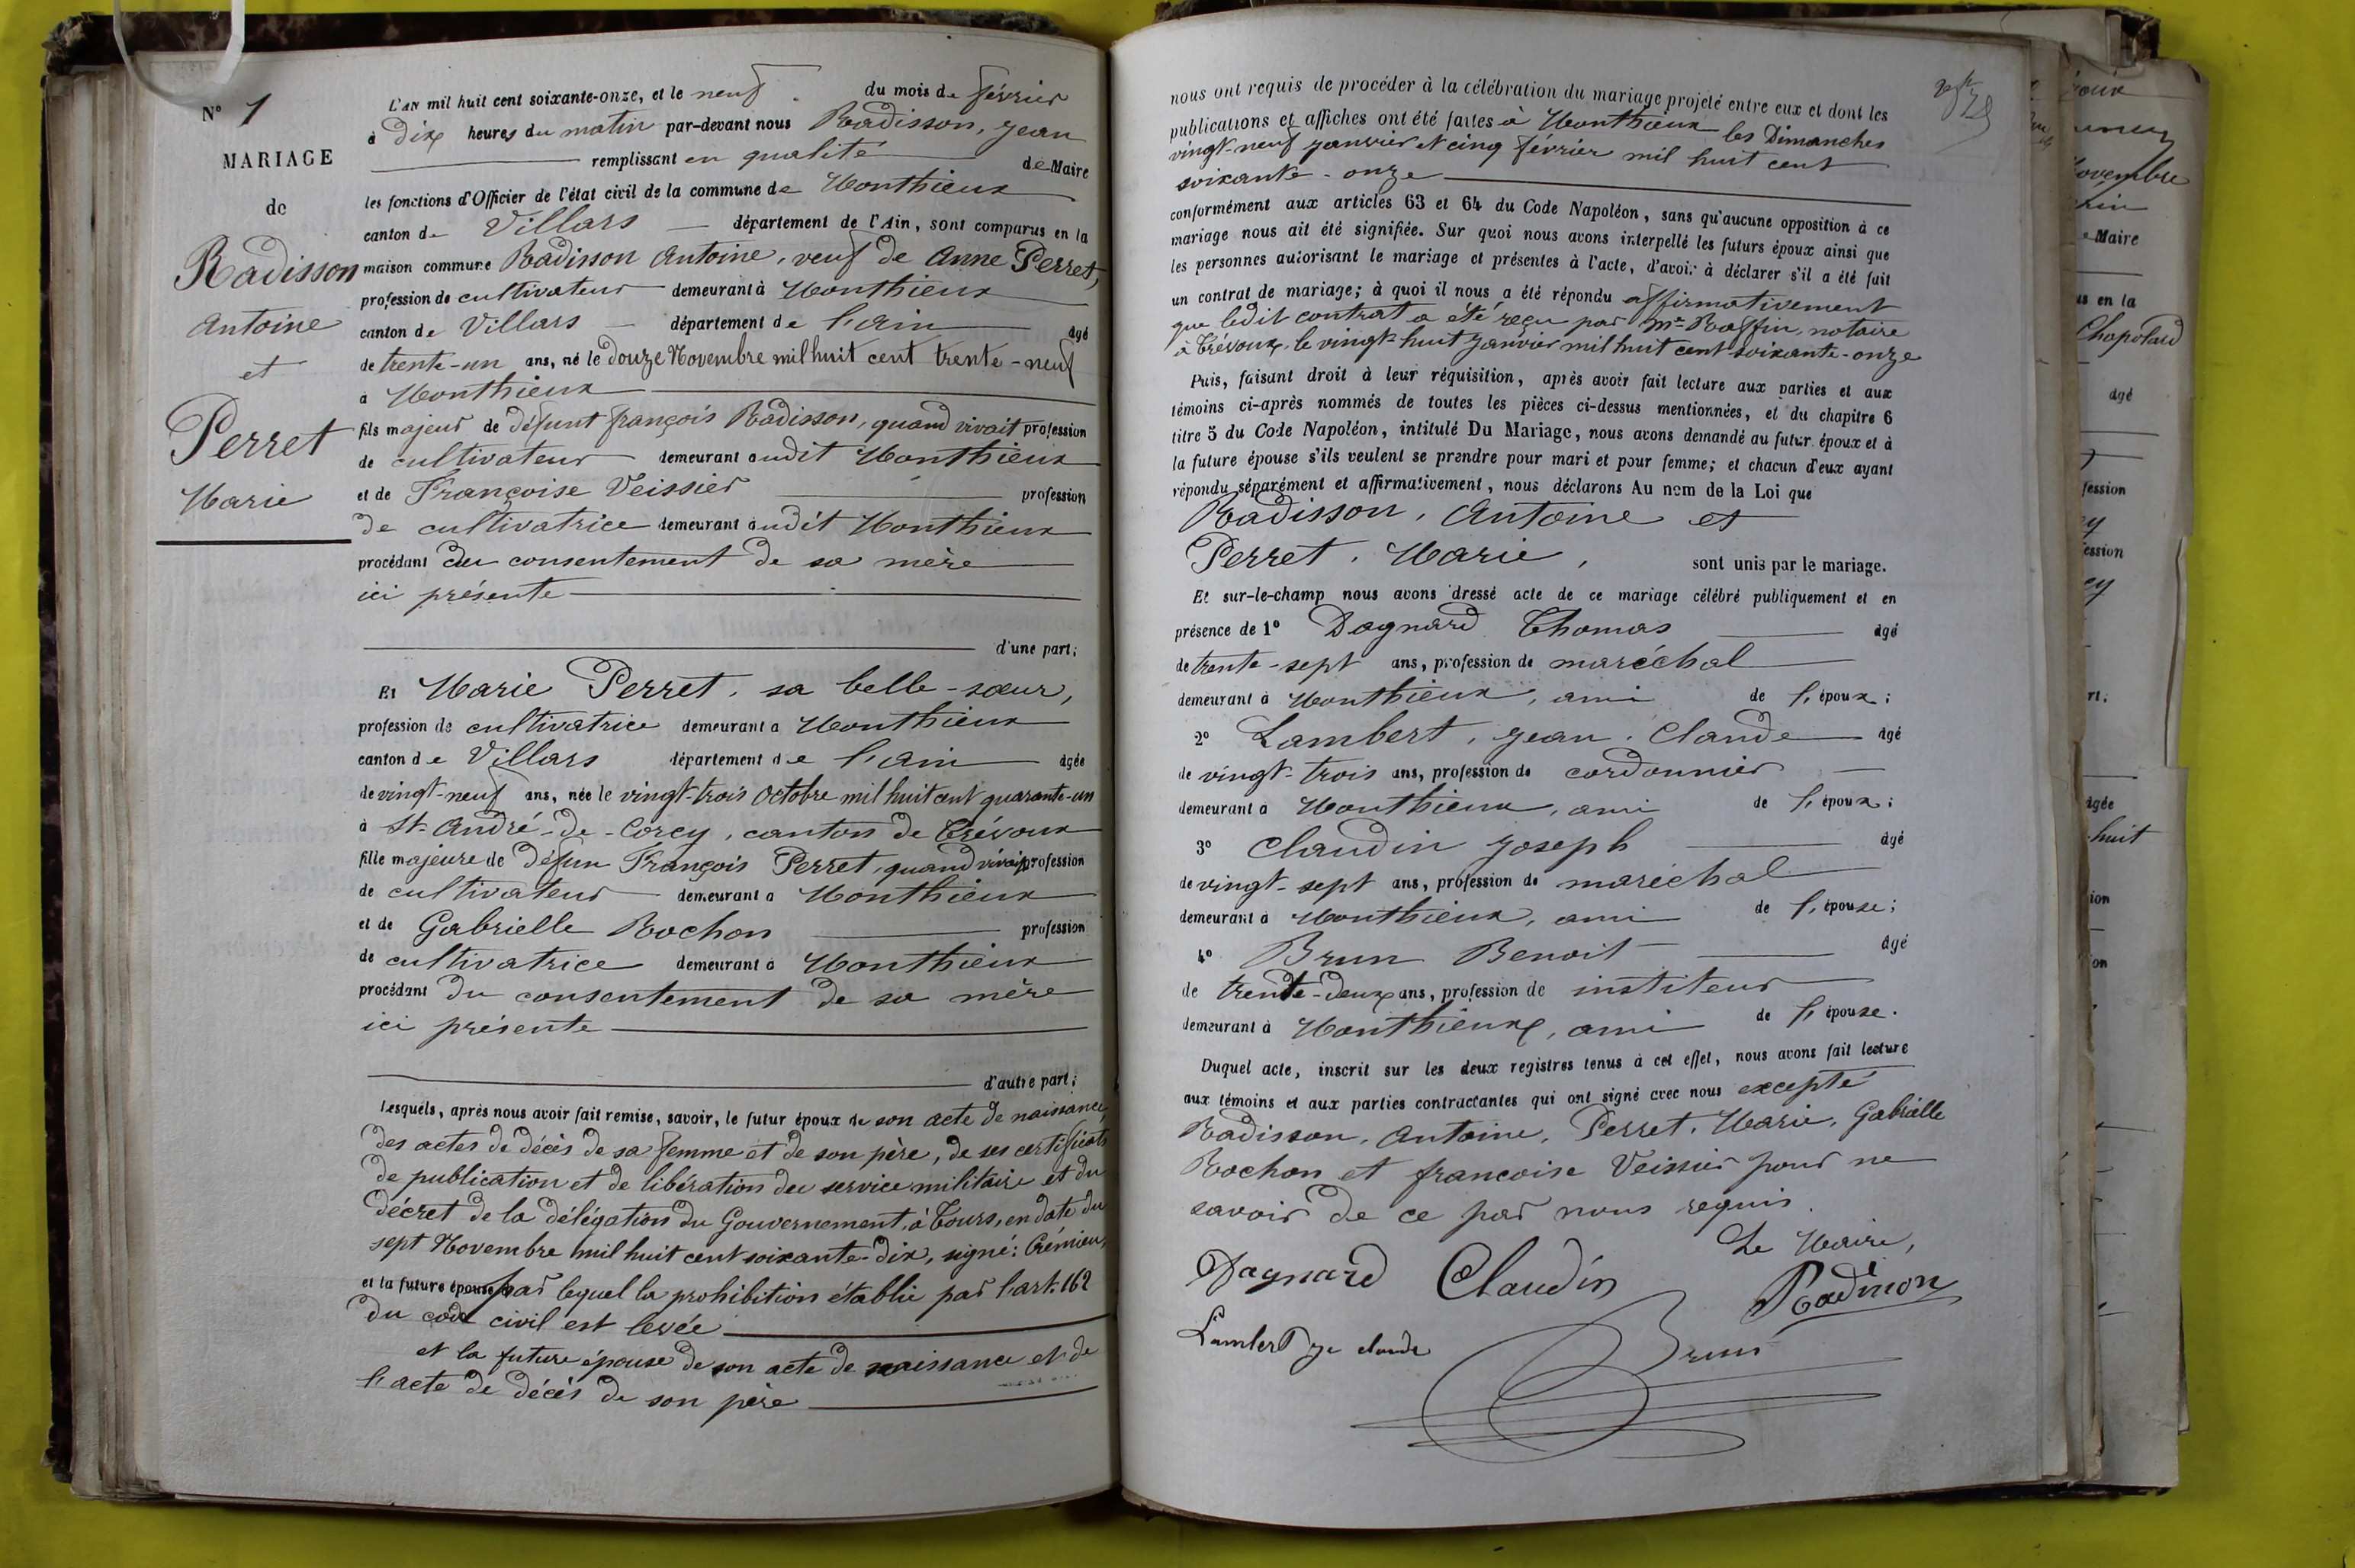 N° 1
MARIAGE
de
Radisson
Antoine
et
Perret
Marie
L'AN mil huit cent soixante-onze, et le neuf du mois de février
à dix heures du matin par-devant nous Radisson, Jean
remplissant en qualité de Maire
les fonctions d'Officier de l'état civil de la commune de Monthieux
canton de Villars département de l'Ain, sont comparus en la
maison commune Radisson Antoine, veuf de Anne Perret,
profession de cultivateur demeurant à Monthieux
canton de Villars département de l'ain âgé
de trente-un ans, né le douze Novembre mil huit cent trente-neuf
à Monthieux
fils majeur de défunt françois Radisson, quand vivait profession
de cultivateur demeurant audit Monthieux
et de Françoise Veissier profession
de cultivatrice demeurant audit Monthieux
procédant du consentement de sa mère
ici présente
d'une part;
Et Marie Perret, sa belle-sœur,
profession de cultivatrice demeurant à Monthieux
canton de Villars département de l'ain âgée
de vingt-neuf ans, née le vingt-trois Octobre mil huit cent quarante-un
à St-André-de-Corcy, canton de Trévoux
fille majeure de défun François Perret, quand vivait profession
de cultivateur demeurant à Monthieux
et de Gabrielle Rochon profession
de cultivatrice demeurant à Monthieux
procédant du consentement de sa mère
ici présente
d'autre part;
Lesquels, après nous avoir fait remise, savoir, le futur époux de son acte de naissance,
des actes de décès de sa femme et de son père, de ses certificats
de publication et de libération du service militaire et du
décret de la délégation du Gouvernement, à Tours, en date du
sept Novembre mil huit cent soixante-dix, signé: Crémieux,
et la future épouse par lequel la prohibition établie par l'art. 162
du code civil est levée
et la future épouse de son acte de naissance et de
l'acte de décès de son père
nous ont requis de procéder à la célébration du mariage projeté entre eux et dont les
publications et affiches ont été faites à Monthieux les Dimanches
vingt-neuf janvier et cinq février mil huit cent
soixante-onze
conformément aux articles 63 et 64 du Code Napoléon, sans qu'aucune opposition à ce
mariage nous ait été signifiée. Sur quoi nous avons interpellé les futurs époux ainsi que
les personnes autorisant le mariage et présentes à l'acte, d'avoir à déclarer s'il a été fait
un contrat de mariage; à quoi il nous a été répondu affirmativement
que ledit contrat a été reçu par Me Raffin, notaire
à Trévoux, le vingt-huit janvier mil huit cent soixante-onze
Puis, faisant droit à leur réquisition, après avoir fait lecture aux parties et aux
témoins ci-après nommés de toutes les pièces ci-dessus mentionnées, et du chapitre 6
titre 5 du Code Napoléon, intitulé Du Mariage, nous avons demandé au futur époux et à
la future épouse s'ils veulent se prendre pour mari et pour femme; et chacun d'eux ayant
répondu séparément et affirmativement, nous déclarons Au nom de la Loi que
Radisson, Antoine et
Perret, Marie, sont unis par le mariage.
Et sur-le-champ nous avons dressé acte de ce mariage célébré publiquement et en
présence de 1° Dagnard Thomas âgé
de trente-sept ans, profession de maréchal
demeurant à Monthieux, ami de l'époux;
2° Lambert, Jean, Claude âgé
de vingt-trois ans, profession de cordonnier
demeurant à Monthieux, ami de l'époux;
3° Claudin Joseph âgé
de vingt-sept ans, profession de maréchal
demeurant à Monthieux, ami de l'épouse;
4° Brun Benoit âgé
de trente-deux ans, profession de instituteur
demeurant à Monthieux, ami de l'épouse.
Duquel acte, inscrit sur les deux registres tenus à cet effet, nous avons fait lecture
aux témoins et aux parties contractantes qui ont signé avec nous excepté
Radisson, Antoine, Perret, Marie, Gabrielle
Rochon et francoise Veissier pour ne
savoir de ce par nous requis.
Le Maire,
Dagnard Claudin Radisson
Lambert je claude Brun
ovembre
Maire
us en la
Chapolard
âgé
fession
ey
ession
ey
rt;
âgée
huit
ion
on